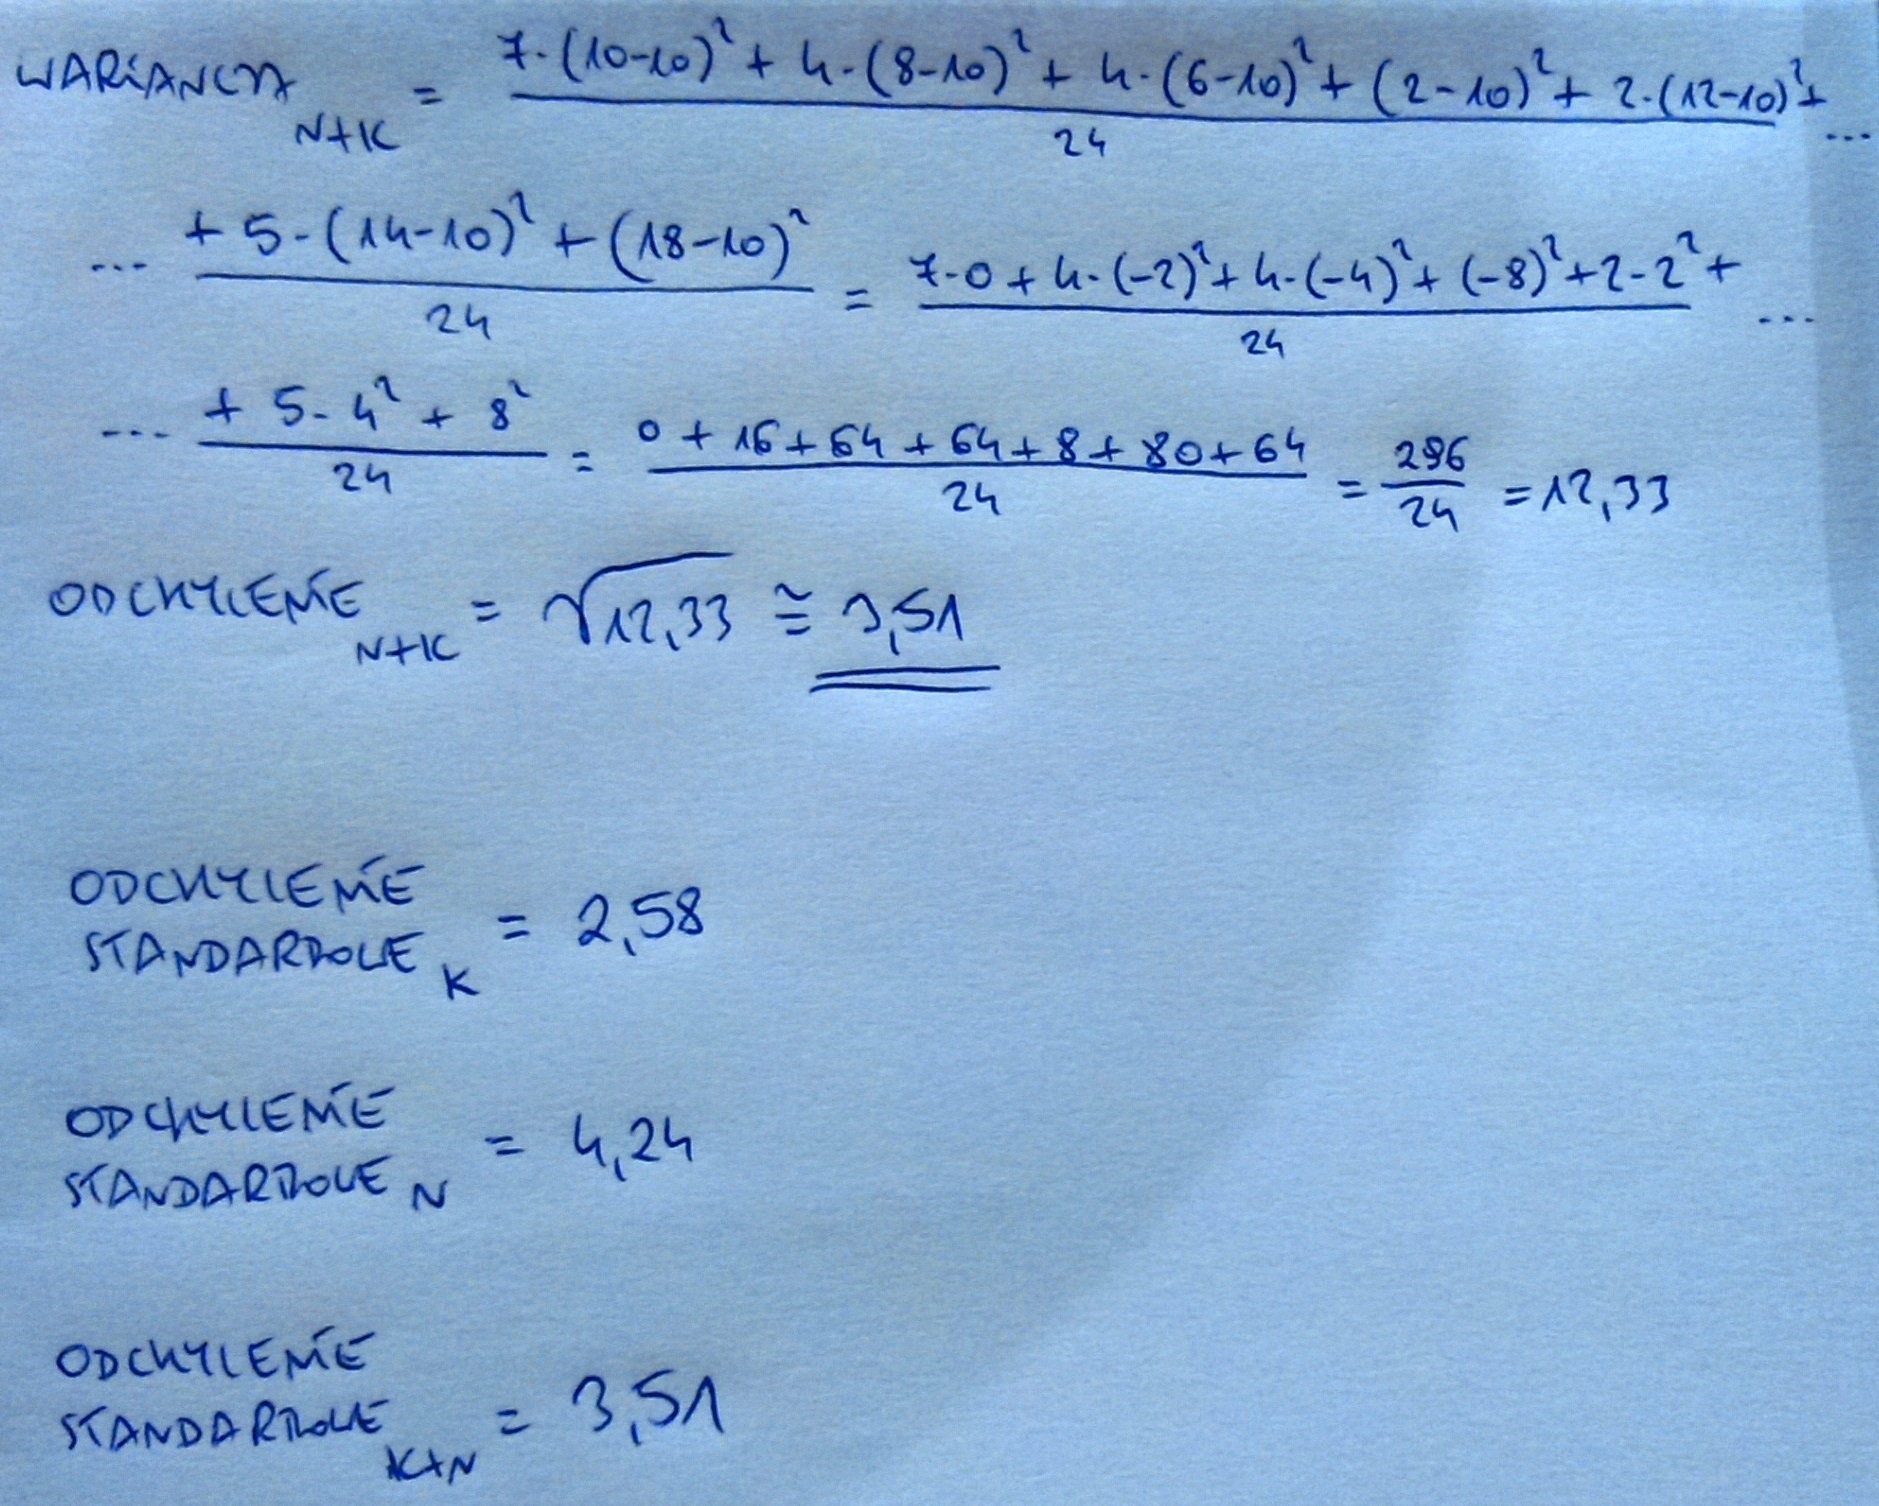 WARIANCJA N+K = 7·(10-10)² + 4·(8-10)² + 4·(6-10)² + (2-10)² + 2·(12-10)² + ...
24
... + 5·(14-10)² + (18-10)² = 7·0 + 4·(-2)² + 4·(-4)² + (-8)² + 2·2² + ...
24 24
... + 5·4² + 8² = 0 + 16 + 64 + 64 + 8 + 80 + 64 = 296 = 12,33
24 24 24
ODCHYLENIE N+K = √12,33 ≅ 3,51
ODCHYLENIE
STANDARDOWE K = 2,58
ODCHYLENIE
STANDARDOWE N = 4,24
ODCHYLENIE
STANDARDOWE K+N = 3,51